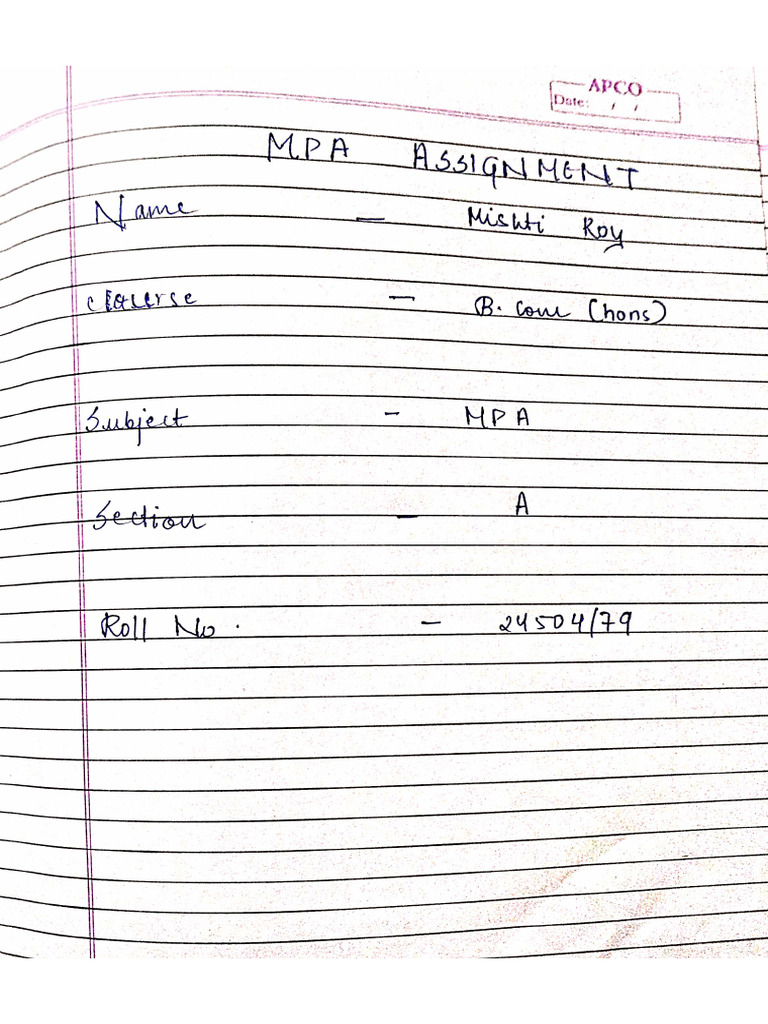 APCO
Date: / /
MPA ASSIGNMENT
Name — Mishti Roy
Course — B. Com (hons)
Subject - MPA
Section — A
Roll No. - 24504/79